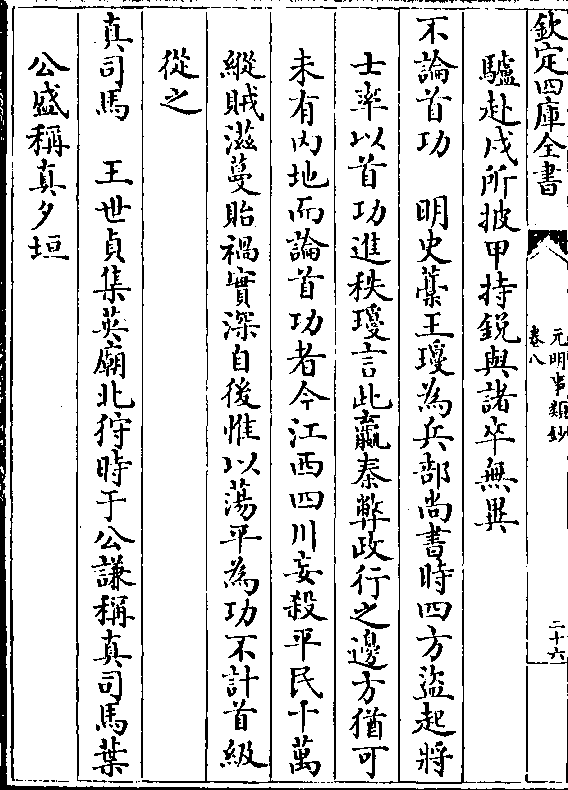 欽定四庫全書
元明事類鈔
卷八
二十六
驢赴戍所披甲持銳與諸卒無異
不論首功　明史藁王瓊為兵部尚書時四方盜起將
士率以首功進秩瓊言此嬴秦弊政行之邊方猶可
未有內地而論首功者今江西四川妄殺平民十萬
縱賊滋蔓貽禍實深自後惟以蕩平為功不計首級
從之
真司馬　王世貞集英廟北狩時于公謙稱真司馬葉
公盛稱真夕垣